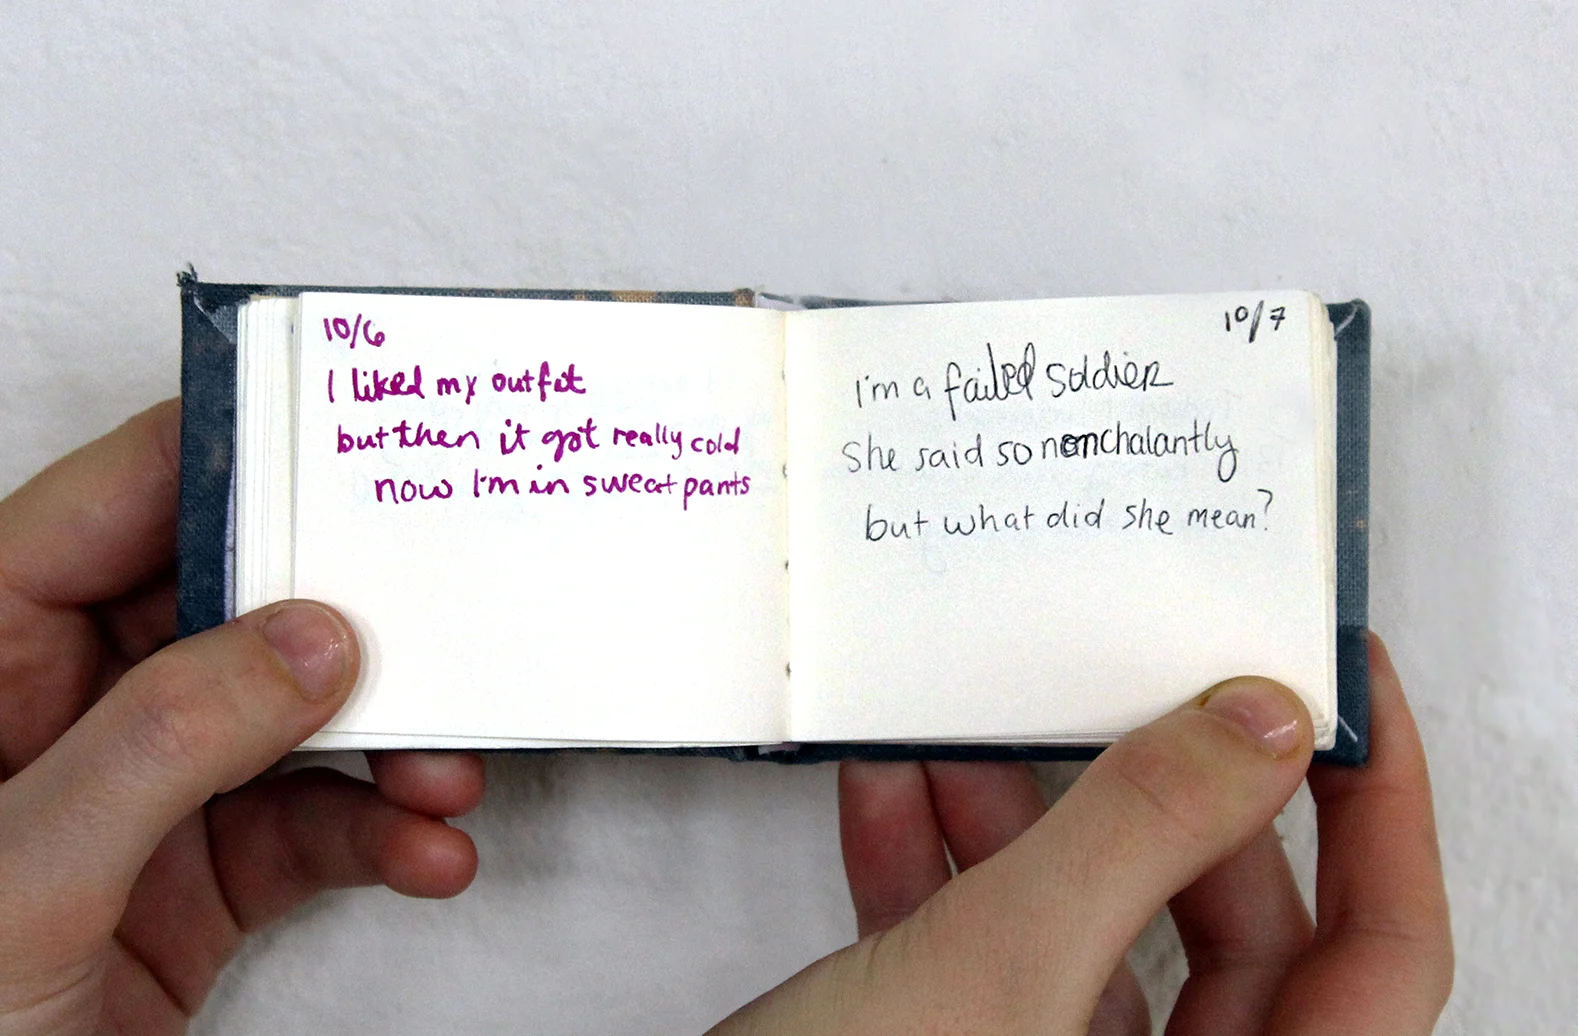 10/6
I liked my outfit
but then it got really cold
now I'm in sweatpants
10/7
I'm a failed soldier
she said so nonchalantly
but what did she mean?